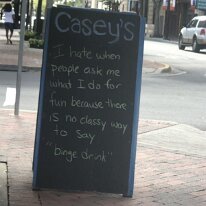 Casey's
I hate when
people ask me
what I do for
fun because there
is no classy way
to say
"binge drink"